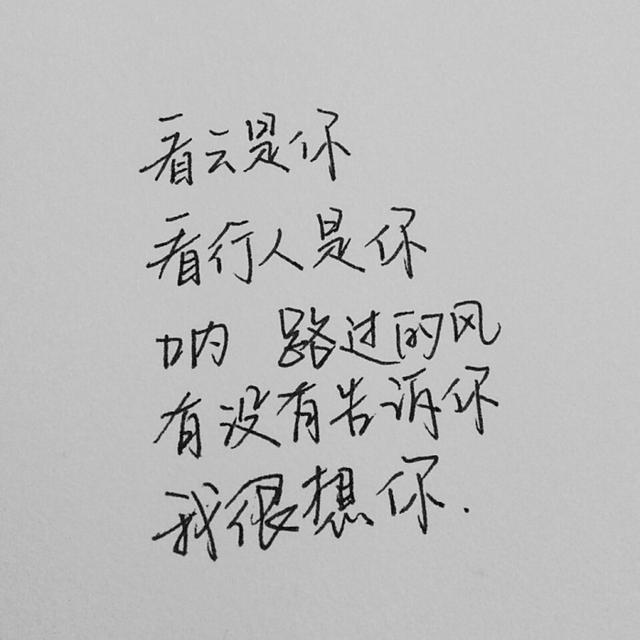 看云是你
看行人是你
呐 路过的风
有没有告诉你
我很想你.